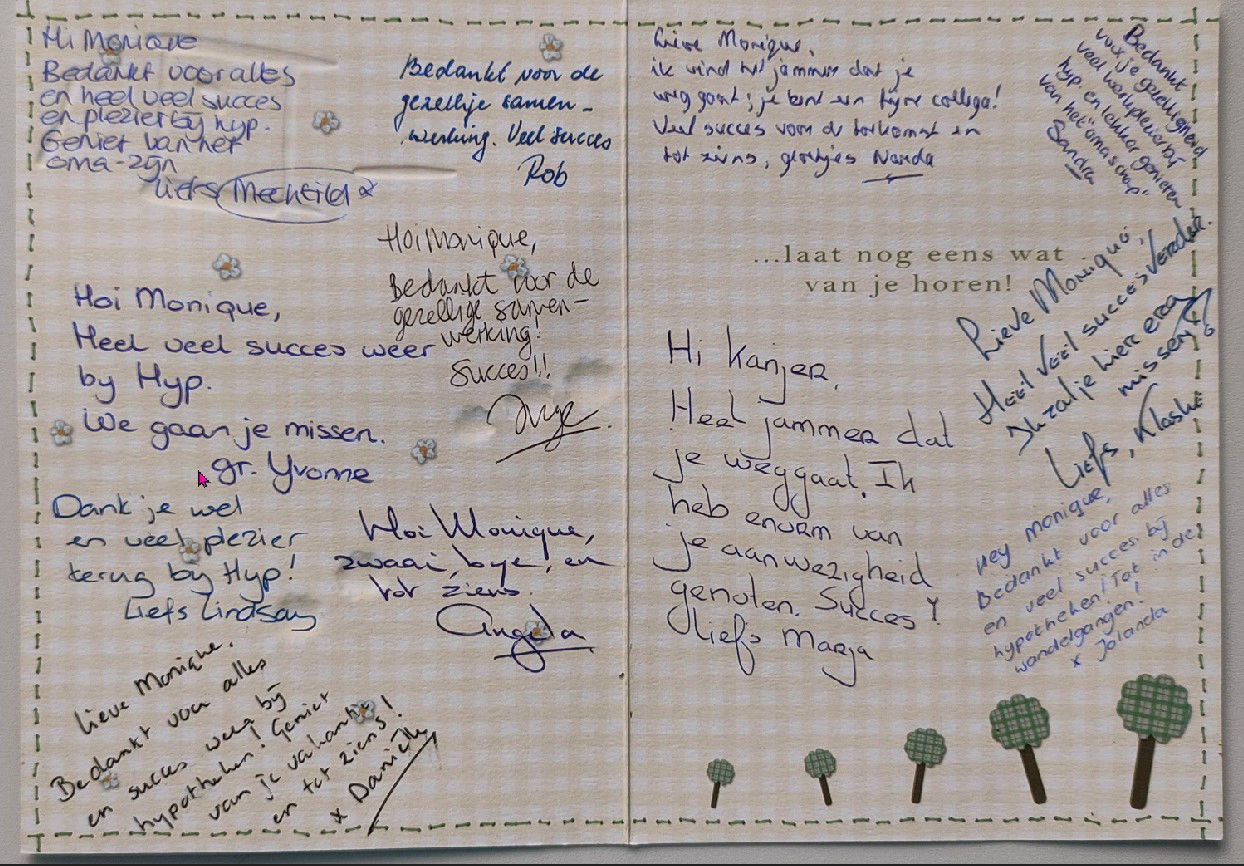 Hi Monique
Bedankt voor alles
en heel veel succes
en plezier bij hyp.
Geniet van het
oma-zijn
Liefs Mechtild x
Bedankt voor de
gezellije samen-
werking. Veel succes
Rob
Hoi Monique,
Bedankt voor de
gezellige samen-
werking!
Succes!!
Inge
Hoi Monique,
Heel veel succes weer
by Hyp.
We gaan je missen.
gr. Yvonne
Dank je wel
en veel plezier
terug by Hyp!
Liefs Lindsay
Hoi Monique,
zwaai, bye, en
tot ziens.
Angela
Lieve Monique,
Bedankt voor alles
en succes weer bij
hypotheken! Geniet
van je vakantie
en tot ziens!
x Daniëlle
Lieve Monique,
ik vind het jammer dat je
weg gaat; je bent een fijne collega!
Veel succes voor de toekomst en
tot ziens, groetjes Wanda
Bedankt
voor je gezelligheid
veel werkplezier bij
hyp en lekker genieten
van het "omaschap"
Sandra
...laat nog eens wat
van je horen!
Lieve Monique,
Heel veel succes verder.
Ik zal je hier erg
missen!
Liefs, Klaske
Hi Kanjer,
Heel jammer dat
je weggaat. Ik
heb enorm van
je aanwezigheid
genoten. Succes!
Liefs Marja
Hey Monique,
Bedankt voor alles
en veel succes bij
hypotheken! Tot in de
wandelgangen!
x Jolanda